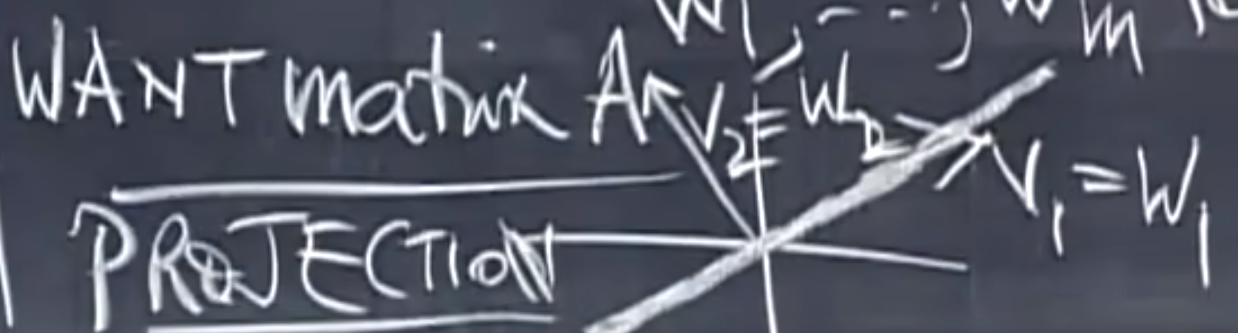 w1, ---, wm
WANT matrix A
V2 = W2
V1 = W1
PROJECTION